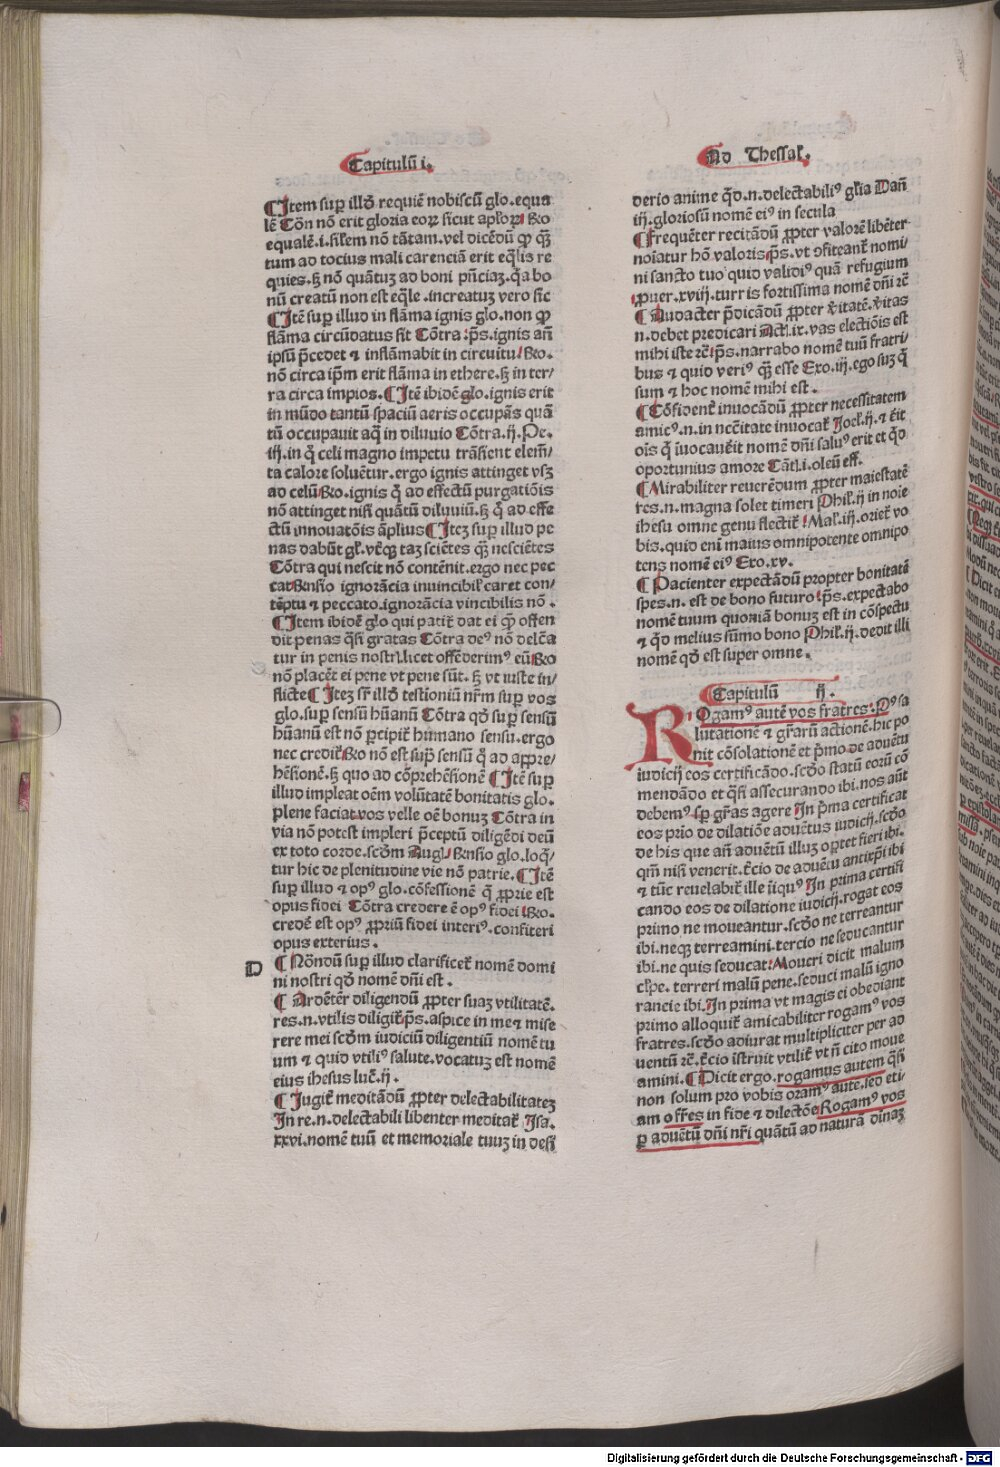 Capitulū i.
¶ Item suꝑ illḋ requiē nobiscū glo. equa
lē Cōn nō erit gloria eoꝝ sicut apl'oꝝ Rō
equalē.i.silem nō tātam. vel dicēdū ꝙ q̄ꝫ
tum ad tocius mali carenciā erit eq̄lis re
quies. sꝫ nō quātuꝫ ad boni pn̄ciaꝫ. q̄a bo
nū creatū non est eq̄le .increatuꝫ vero sic
¶ Itē suꝑ illud in flāma ignis glo. non ꝙ
flāma circūdatus sit Cōtra ꝑs. ignis an̄
ipsū p̄cedet ⁊ inflāmabit in circuitu Rō.
nō circa ip̄m erit flāma in ethere. sꝫ in ter/
ra circa impios. ¶ Itē ibidē glo. ignis erit
in mūdo tantū spaciū aeris occupās quā
tū occupauit aq̄ in diluuio Cōtra .ij. Pe.
iij. in q̄ celi magno impetu trāsient elem̄/
ta calore soluētur. ergo ignis attinget vsꝫ
ad celū Rō. ignis q̄ ad effectū purgatiōis
nō attinget nisi quātū diluuiū. sꝫ q̄ ad effe
ctū innouatōis āplius ¶ Iteꝫ suꝑ illud pe
nas dabūt gl'. vtꝙ taꝫ sciētes q̄ꝫ nesciētes
Cōtra qui nescit nō contēnit. ergo nec pec
cat Rn̄sio ignorācia inuincibil' caret con/
tēptu ⁊ peccato. ignorācia vincibilis nō .
¶ Item ibidē glo qui patit' dat ei ꝙ offen
dit penas q̄si gratas Cōtra deꝰ nō delc̄a
tur in penis nostr'. licet offēderimꝰ eū Rō
nō placēt ei pene vt pene sūt. sꝫ vt iuste in/
flicte ¶ Iteꝫ sr̄ illḋ testioniū nr̄m suꝑ vos
glo. suꝑ sensū hūanū Cōtra qḋ suꝑ sensū
hūanū est nō ꝑcipit' humano sensu. ergo
nec credit' Rō nō est sup̄ sensū q̄ ad appre/
hēsionē. sꝫ quo ad cōprehēsionē ¶ Itē suꝑ
illud impleat oēm volūtatē bonitatis glo.
plene faciat vos velle oē bonuꝫ Cōtra in
via nō potest impleri p̄ceptū diligēdi deū
ex toto corde. scd̄m Aug. Rn̄sio glo. loq̄/
tur hic de plenitudine vie nō patrie. ¶ Itē
suꝑ illud ⁊ opꝰ glo. cōfessionē q̄ ꝓprie est
opus fidei Cōtra credere ē opꝰ fidei Rō.
credē est opꝰ ꝓpriū fidei interiꝰ. confiteri
opus exterius .
D
¶ Nōndū suꝑ illud clarificet' nomē domi
ni nostri qḋ nomē dn̄i est .
¶ Ardēter diligendū ꝓpter suaꝫ vtilitatē.
res. n. vtilis diligit' p̄s. aspice in me ⁊ mise
rere mei scd̄m iudiciū diligentiū nomē tu
um ⁊ quid vtiliꝰ salute. vocatuꝫ est nomē
eius ihesus luc̄. ij .
¶ Iugit' meditādū ꝓpter delectabilitateꝫ
In re. n. delectabili libenter meditat' Isa.
xxvi. nomē tuū et memoriale tuuꝫ in desi
Ad Thessal'.
derio anime q̄ḋ. n. delectabiliꝰ gl'ia Dan̄
iij. gloriosū nomē eiꝰ in secula
¶ Frequēter recitādū ꝓpter valorē libēter
noīatur hō valoris p̄s. vt ꝯfiteant' nomi/
ni sancto tuo quid validiꝰ quā refugium
ꝓuer. xviij. turris fortissima nomē dn̄i rē
¶ Audacter p̄dicādū ꝓpter v̄itatē. v̄itas
n. debet predicari Act'. ix. vas electiōis est
mihi iste rē p̄s. narrabo nomē tuū fratri/
bus ⁊ quid veriꝰ q̄ꝫ esse Exo. iij. ego suꝫ q̄
sum ⁊ hoc nomē mihi est .
¶ Cōfident' inuocādū ꝓpter necessitatem
amicꝰ. n. in nc̄itate inuocat' Joel'. ij. ⁊ ēit
oīs q̄ īuocau̅it nomē dn̄i saluꝰ erit et q̄ḋ
oportunius amore Cāt'. i. oleū eff.
¶ Mirabiliter reuerēdum ꝓpter maiestatē
res. n. magna solet timeri Phil'. ij in noīe
ihesu omne genu flectit' Mal'. iij. oriet' vo
bis. quid eni maius omnipotente omnipo
tens nomē eiꝰ Exo. xv.
¶ Pacienter expectādū propter bonitatē
spes. n. est de bono futuro p̄s. expectabo
nomē tuum quoniā bonuꝫ est in cōspectu
⁊ q̄ḋ melius sūmo bono Phil'. ij. dedit illi
nomē qḋ est super omne .
Capitulū ij .
Rogamꝰ autē vos fratres. Pꝰ sa
lutationē ⁊ gr̄arū actionē. hic po
nit cōsolationē et p̄mo de aduētu
iudicij eos certificādo. scd̄o statū eorū cō
mendādo et q̄si assecurando ibi. nos aūt
debemꝰ sꝑ gr̄as agere In p̄ma certificat
eos prio de dilatiōe aduētus iudicij. scd̄o
de his que an̄ aduētū illuꝫ oꝑtet fieri ibi.
qm̄ nisi venerit. t̄cio de aduētu antixp̄i ibi
⁊ tūc reuelabit' ille iniquꝰ In prima certifi
cando eos de dilatione iudicij. rogat eos
primo ne moueantur. scd̄o ne terreantur
ibi. neqꝫ terreamini. tercio ne seducantur
ibi. ne quis seducat. Moueri dicit malum
cl'pe. terreri malū pene. seduci malū igno
rancie ibi. In prima vt magis ei obediant
primo alloquit' amicabiliter rogamꝰ vos
fratres. scd̄o adiurat multipliciter per ad
uentū rē. t̄cio īstruit vtilit' vt n̄ cito moue
amini. ¶ Dicit ergo. rogamus autem q̄si
non solum pro vobis oramꝰ aute. sed eti-
am o fr̄es in fide ⁊ dilectōe Rogamꝰ vos
ꝑ aduētū dn̄i nr̄i quātū ad naturā diuinaꝫ
Digitalisierung gefördert durch die Deutsche Forschungsgemeinschaft - DFG